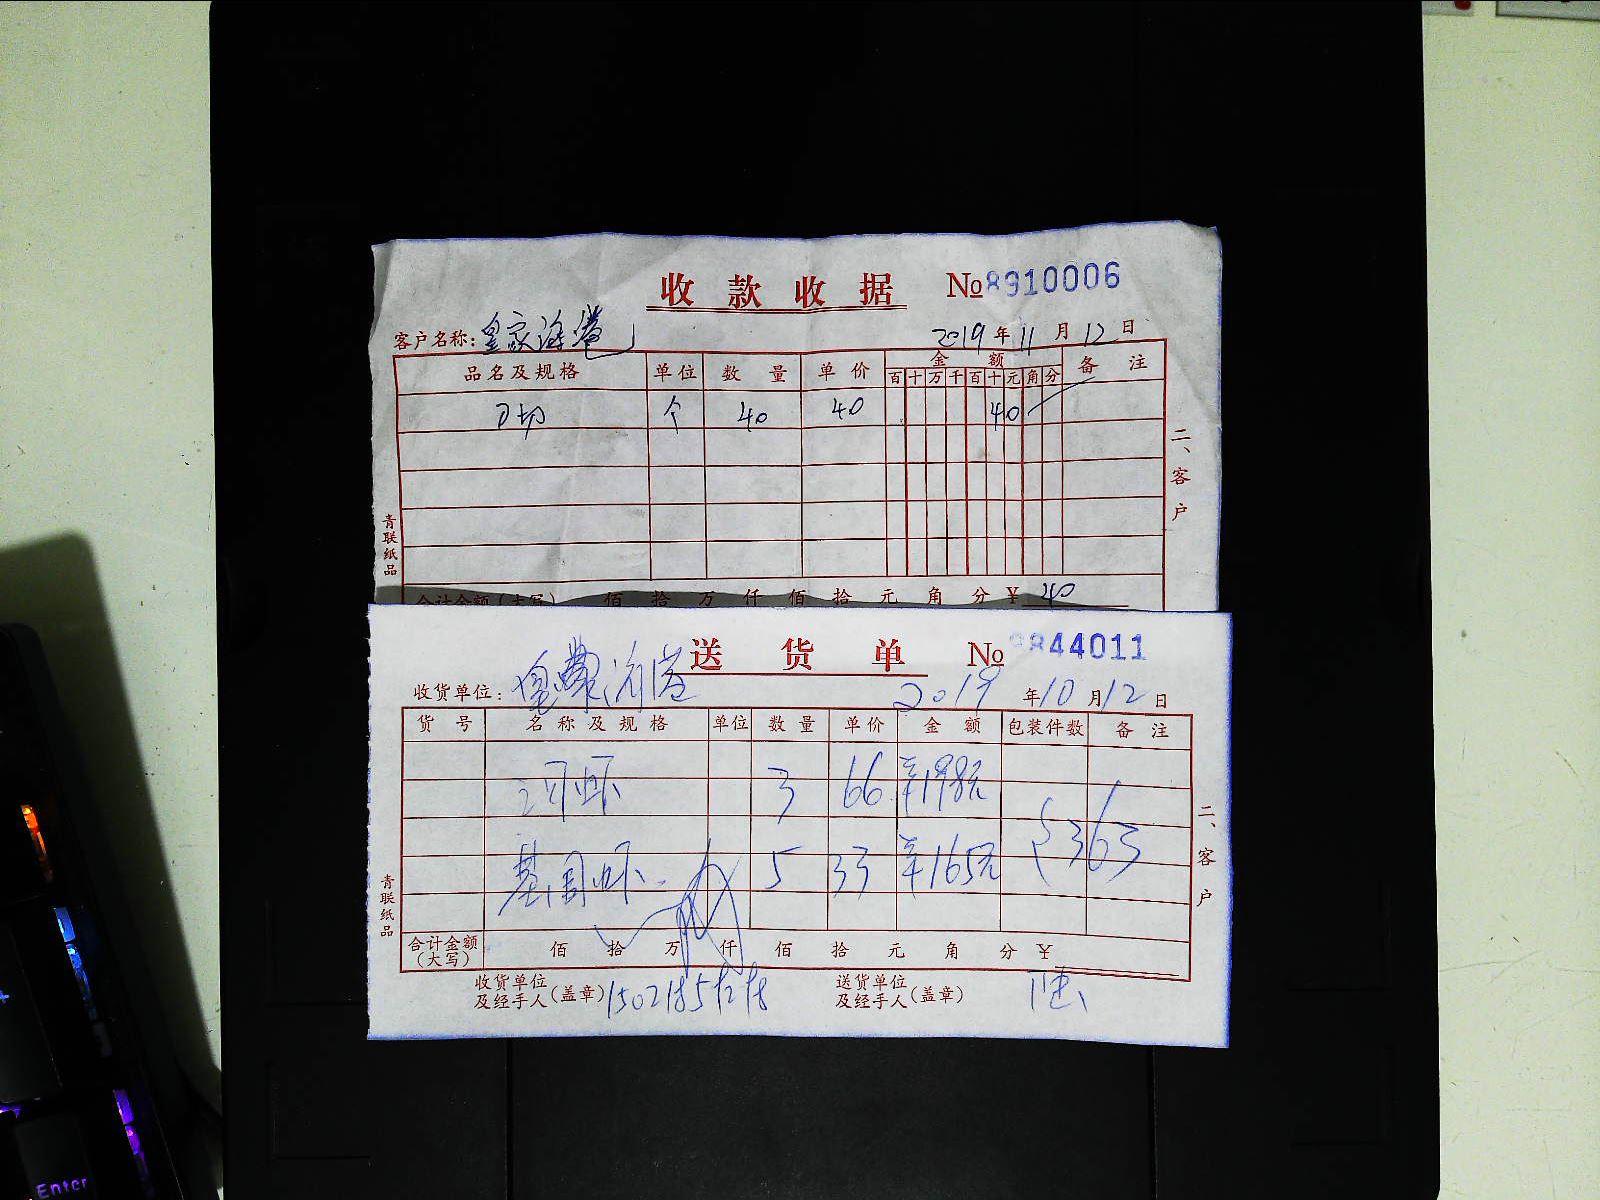 收款收据 No 8910006
客户名称: 皇家海港 2019年11月12日
品名及规格 单位 数量 单价 金额 备注
百 十 万 千 百 十 元 角 分
个 40 40 40
二、客户
青联纸品
合计金额(大写) 佰 拾 万 仟 佰 拾 元 角 分 ¥ 40
送货单 No 9844011
收货单位: 2019年10月12日
货号 名称及规格 单位 数量 单价 金额 包装件数 备注
河虾 3 66 ¥198元
363
基围虾 5 33 ¥165元
二、客户
青联纸品
合计金额(大写) 佰 拾 万 仟 佰 拾 元 角 分 ¥
收货单位及经手人(盖章) 送货单位及经手人(盖章)